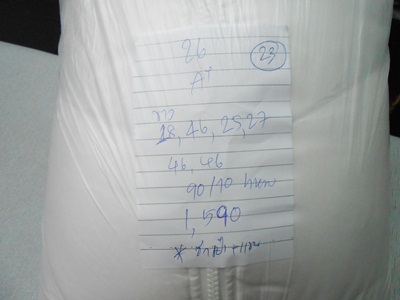 26 23
A+
ขาว
18, 46, 25, 27
46, 46
90/90
1,590
*